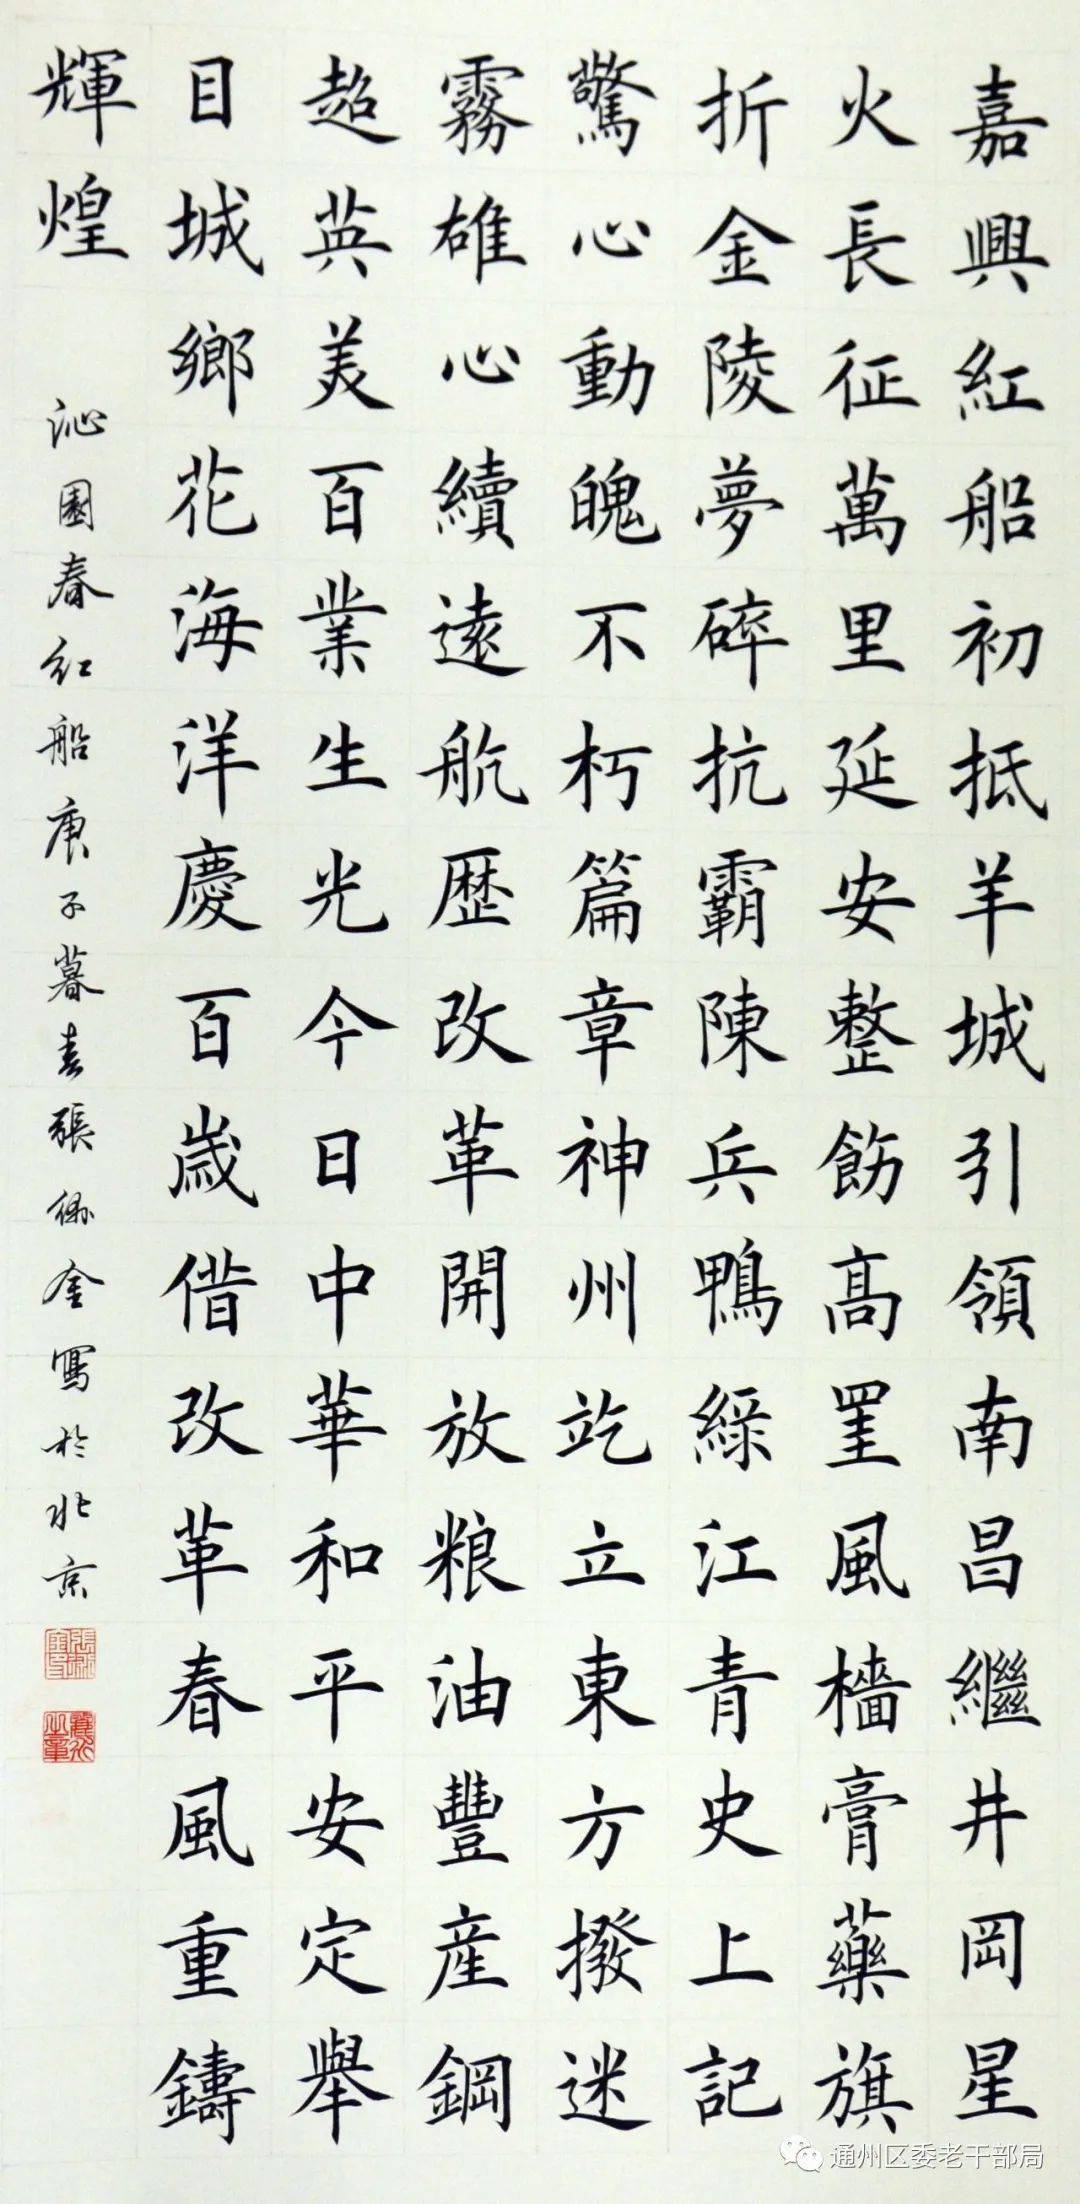 嘉興紅船初抵羊城引領南昌繼井岡星
火長征萬里延安整飭高罣風檣膏藥旗
折金陵夢碎抗霸陳兵鴨綠江青史上記
驚心動魄不朽篇章神州訖立東方撥迷
霧雄心續遠航歷改革開放粮油豐產鋼
超英美百業生光今日中華和平安定舉
目城鄉花海洋慶百歲借改革春風重鑄
輝煌
沁園春红船庚子暮春張 金寫於北京
通州区委老干部局